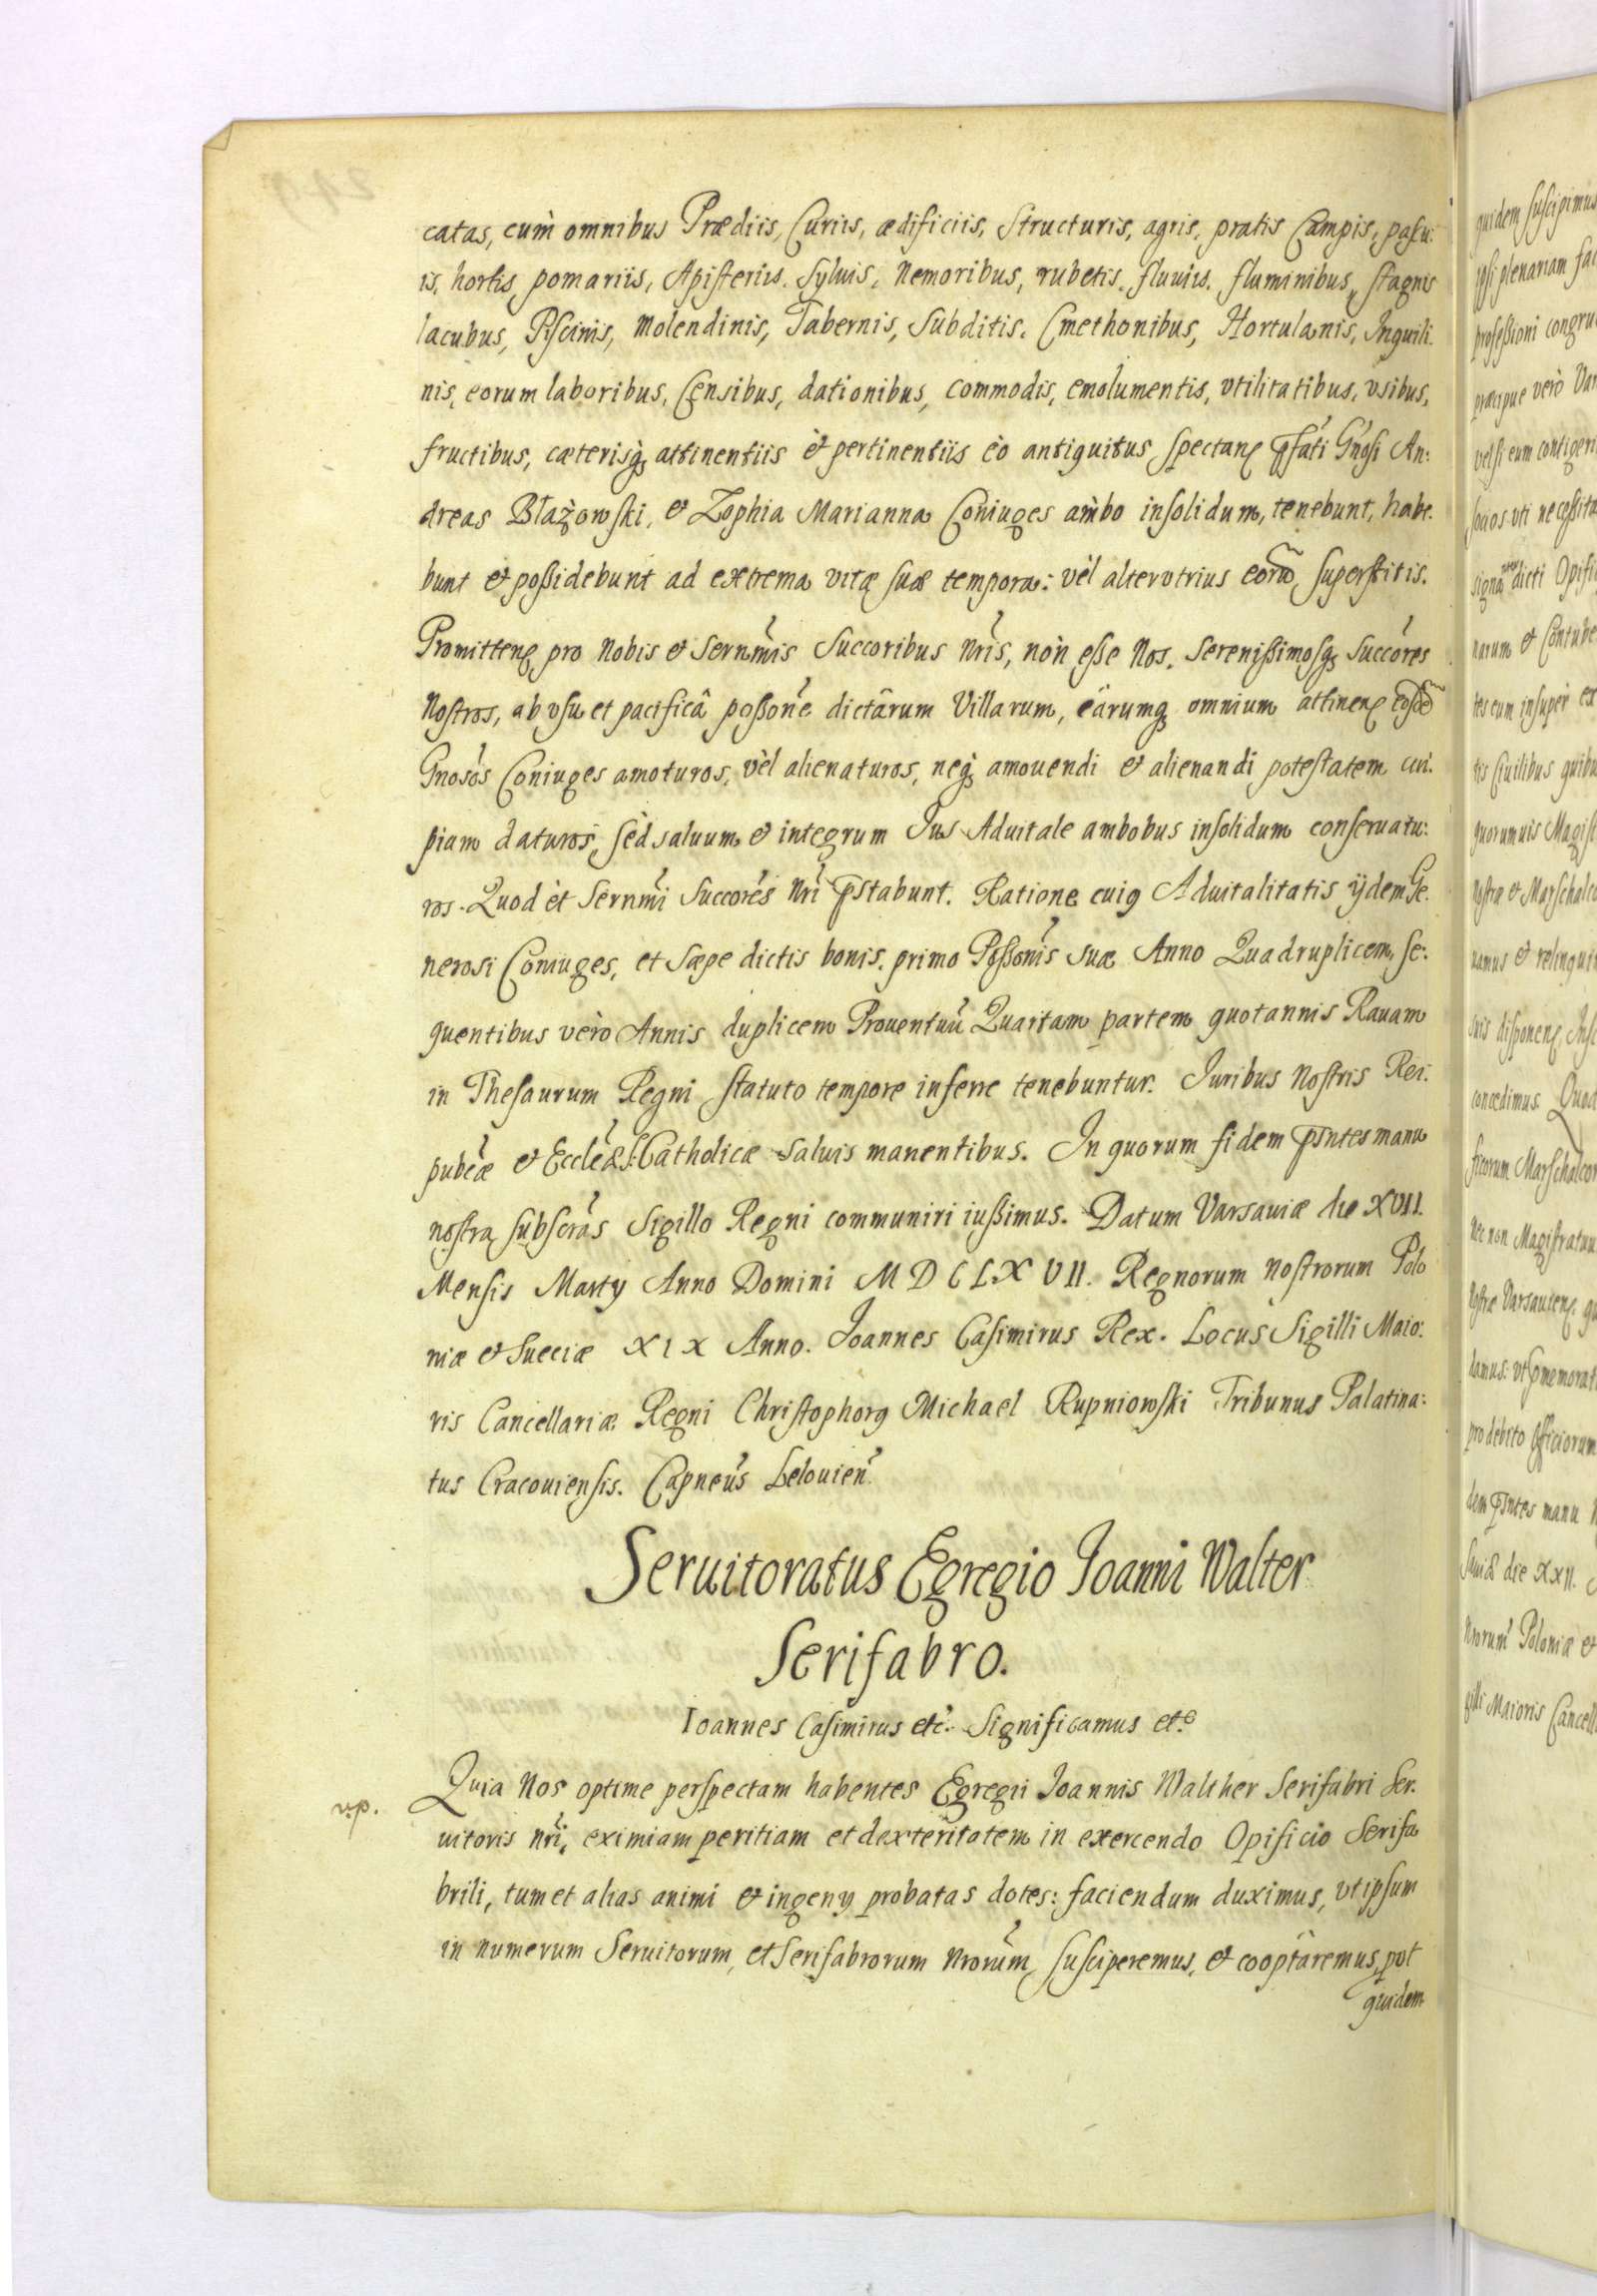 catas, cum omnibus Prædiis, Curiis, ædificiis, Structuris, agris, pratis Campis, pascu:
is, hortis pomariis, Apisteriis. Syluis, Nemoribus, rubetis, fluuiis. fluminibus, stagnis
lacubus, Piscinis, Molendinis, Tabernis, Subditis. Cmethonibus, Hortulanis, Inquili:
nis, eorum laboribus, Censibus, dationibus, commodis, emolumentis, vtilitatibus, vsibus,
fructibus, cæterisq; attinentiis et pertinentiis eo antiquitus spectan. pfati Gnosi An:
dreas Błażowski, et Zophia Marianna Coniuges ambo insolidum, tenebunt, habe:
bunt et possidebunt ad extrema vitæ suæ tempora: vel alterutrius eorũ superstitis.
Promitten. pro Nobis et Sernmis Succoribus Nris, non esse Nos, Serenissimosq; Succores
Nostros, ab vsu et pacificâ possone dictarum Villarum, earumq; omnium attinen. eosdẽ
Gnosos Coniuges amoturos, vel alienaturos, neq; amouendi et alienandi potestatem cui:
piam daturos, sed saluum et integrum Ius Aduitale ambobus insolidum conseruatu:
ros. Quod et Sernmi Succores Nri pstabunt. Ratione cuiq Aduitalitatis ijdem Ge:
nerosi Coniuges, et Sæpe dictis bonis, primo Possonis suæ Anno Quadruplicem, se:
quentibus vero Annis duplicem Prouentuũ Quartam partem quotannis Rauam
in Thesaurum Regni statuto tempore inferre tenebuntur. Iuribus Nostris Rei:
pubcæ et Eccleæ S: Catholicæ saluis manentibus. In quorum fidem psntes manu
nostra subscras Sigillo Regni communiri iussimus. Datum Varsauiæ die XVII.
Mensis Martij Anno Domini M D C L X V II. Regnorum Nostrorum Polo
niæ et Sueciæ X I X Anno. Ioannes Casimirus Rex. Locus Sigilli Maio:
ris Cancellariæ Regni Christophorq Michael Rupniowski Tribunus Palatina:
tus Cracouiensis. Capneus Lelouien.
Seruitoratus Egregio Ioanni Walter
Serifabro.
Ioannes Casimirus etc. Significamus etc
Quia Nos optime perspectam habentes Egregii Ioannis Walther Serifabri Ser:
uitoris nri, eximiam peritiam et dexteritatem in exercendo Opificio Serifa
brili, tum et alias animi et ingenij probatas dotes: faciendum duximus, vt ipsum
in numerum Seruitorum, et Serifabrorum Nrorum, susciperemus, et cooptaremus,
quidem
quidem suscipimus
ipsi plenariam
professioni
vero
vel si eum
socios vti
dicti
narum et
tes eum insuper
tis Ciuilibus
quorumuis
Nostræ et
uamus et
suis disponen.
concedimus. Quod
ficorum
nec non Magistratuu
Nostræ Varsauien.
damus: vt
pro debito Officiorum
dem psntes manu
die XXII.
Nrorum Poloniæ et
gilli Maioris Cancell